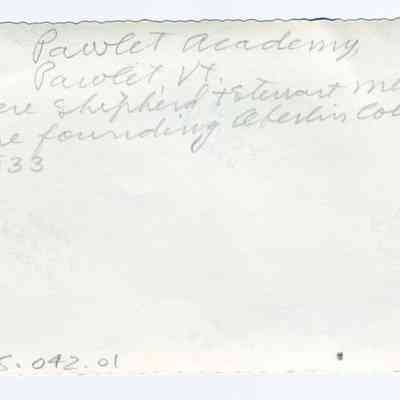 Pawlet Academy,
Pawlet, Vt.
ere Shepherd + Stewart
re founding Oberlin Col
33
5.042.01